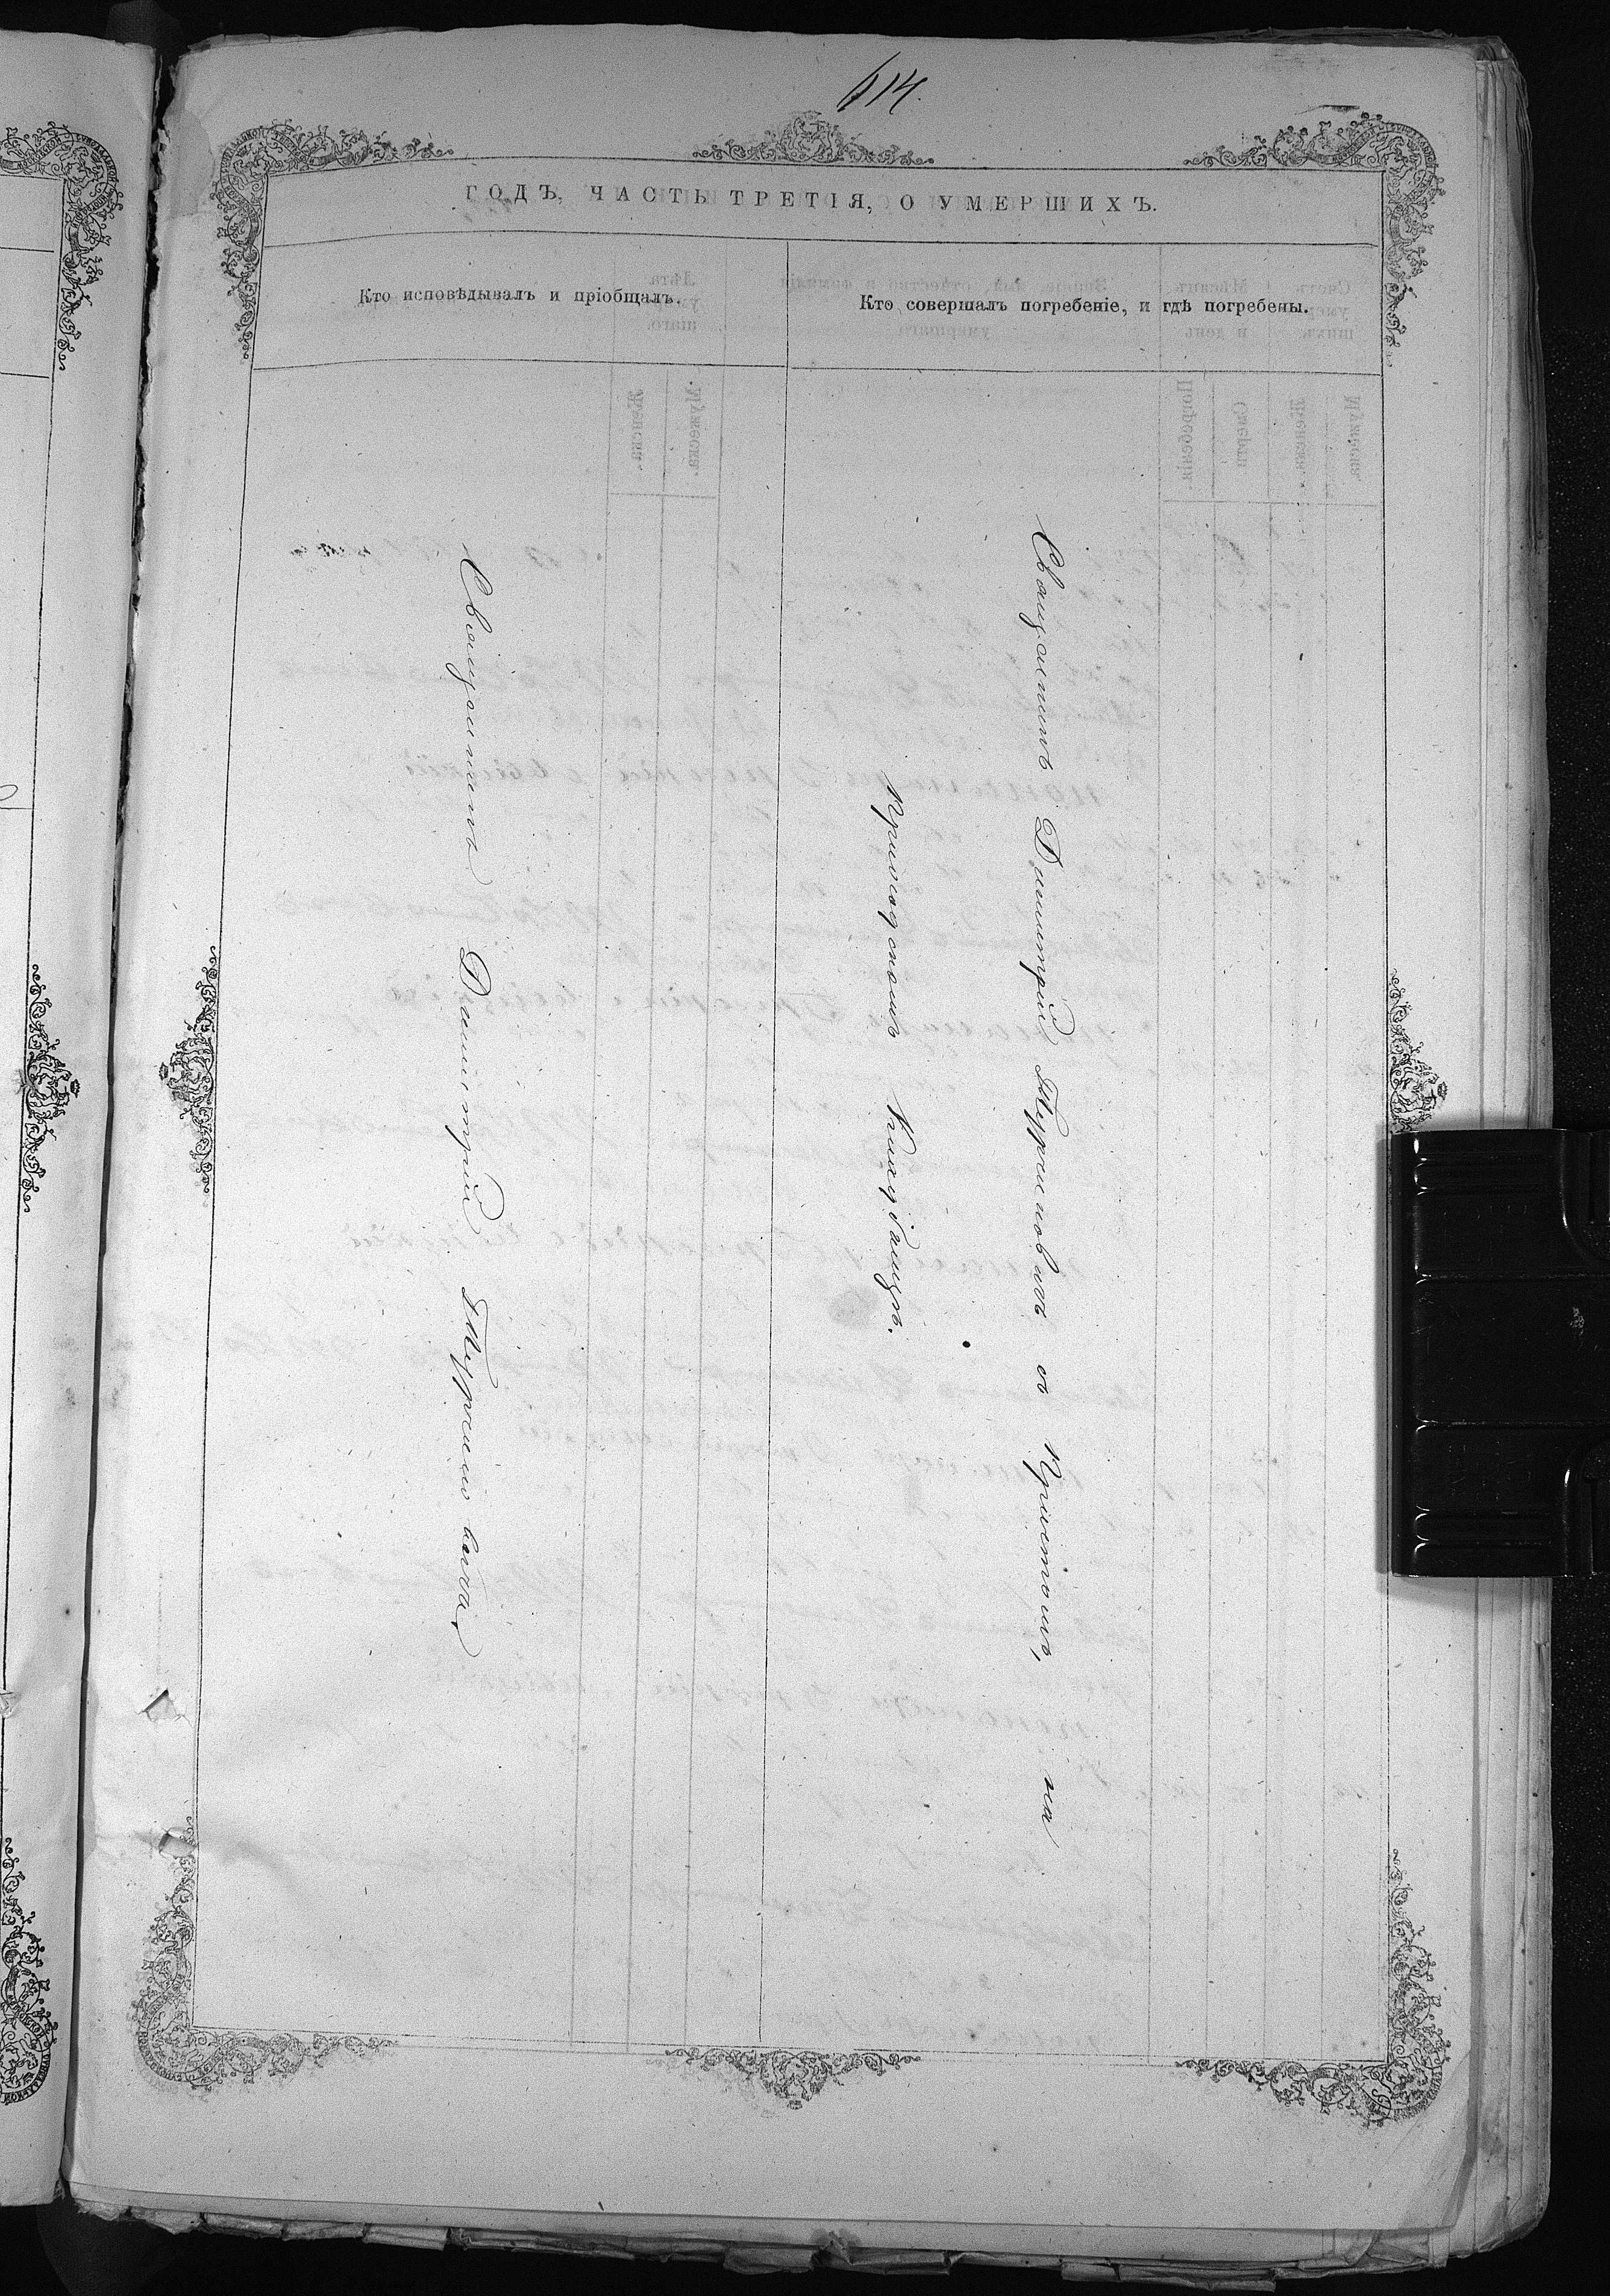 614.
ГОДЪ, ЧАСТЬ ТРЕТІЯ, О УМЕРШИХЪ.
Кто исповѣдывалъ и пріобщалъ.
Кто совершалъ погребеніе, и гдѣ погребены.
Священникъ Димитрій
Священникъ Димитрій съ Причтомъ, на
Приходскомъ Кладбищѣ.